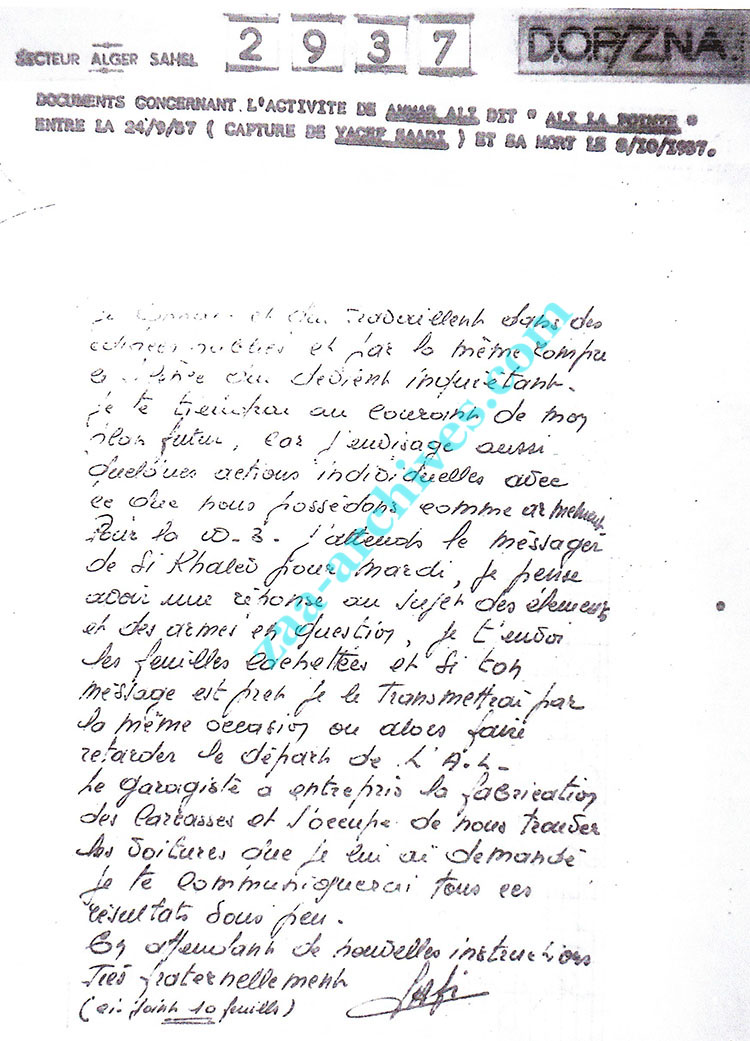 SECTEUR ALGER SAHEL
2 9 3 7
D.O.P/Z.N.A.
DOCUMENTS CONCERNANT L'ACTIVITE DE AMMAR ALI DIT " ALI LA POINTE "
ENTRE LA 24/9/57 ( CAPTURE DE YACEF SAADI ) ET SA MORT LE 8/10/1957.
et qui travaillent dans des
et par la même
qui devient inquiétant.
je te tiendrai au courant de mon
plan futur, car j'envisage aussi
quelques actions individuelles avec
ce que nous possédons comme armement
Pour la W. 3. j'attends le méssager
de Si Khaled pour mardi, je pense
avoir une réponse au sujet des élements
et des armes en question, je t'envoi
les feuilles cachettées et si ton
méssage est pret je le transmettrai par
la même occasion ou alors faire
retarder le départ de L'A.L-
Le garagiste a entrepris la fabrication
des carcasses et s'occupe de nous trouver
les voitures que je lui ai demandé
je te communiquerai tous ces
résultats sous peu.
En attendant de nouvelles instructions
Très fraternellement
(ci-joint 10 feuilles)
zaa-archives.com